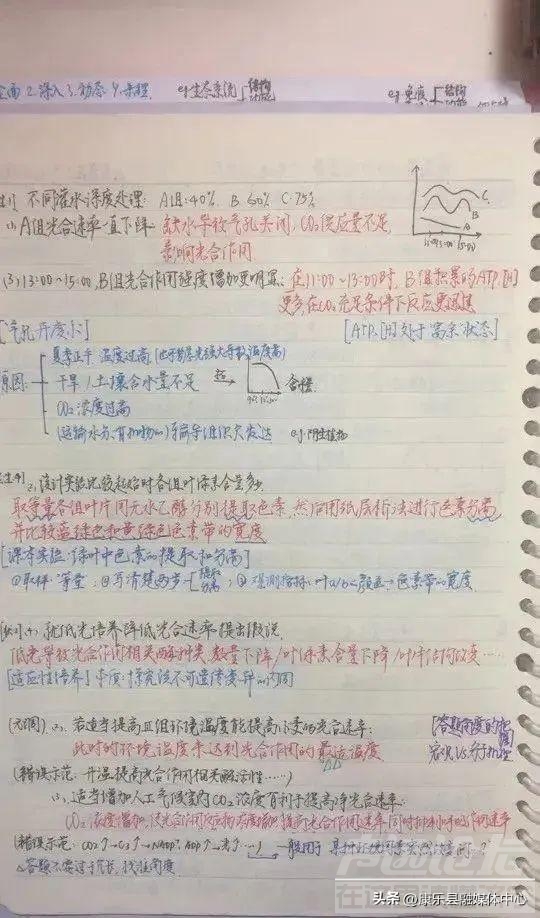 全面 2.深入 3.动态 4.
eg 生态系统 结构 功能
eg 免疫 结构
不同灌水深度处理: A组:40% B 60% C 75%
C B A
11:00 13:00 15:00
(1) A组光合速率一直下降 缺水导致气孔关闭, CO₂供应量不足,
影响光合作用
(3) 13:00~15:00, B组光合作用强度增加更明显: 在11:00~13:00时, B组积累的ATP、[H]
更多, 在CO₂充足条件下反应更迅速
[气孔开度小]
[ATP、[H]处于"富余"状态]
原因:
夏季正午 温度过高 (也可能是光强大导致温度高)
干旱/土壤含水量不足
CO₂浓度过高
(运输水分、有机物的)导管等组织欠发达 eg.阴生植物
(2) 设计实验比较起始时各组叶绿素含量多少
取等量各组叶片用无水乙醇分别提取色素, 然后用纸层析法进行色素分离
并比较蓝绿色和黄绿色色素带的宽度
[课本实验: 绿叶中色素的提取和分离]
①取样 等量; ②写清楚两步 提取 分离; ③观测指标: 叶a/b—颜色→色素带的宽度
就低光培养降低光合速率提出假说
低光导致光合作用相关酶种类、数量下降/叶绿素含量下降/叶片结构改变……
[适应性培养] 本质: 探究该不可遗传变异的内因
若适当提高 组环境温度能提高 的光合速率:
此时的环境温度未达到光合作用的最适温度
[答题角度的 ]
宏观 vs 分子机理
(错误示范: 升温提高光合作用相关酶活性……)
适当增加人工气候室内CO₂浓度有利于提高净光合速率:
CO₂浓度增加, 光合作用反应物浓度增加, 提高光合作用速率 同时抑制呼吸作用速率
(错误示范: CO₂↑→C₃↑→NADP⁺、ADP↑→光↑…)
一般用于
△答题不要过于冗长, 找准角度
头条 @康乐县融媒体中心